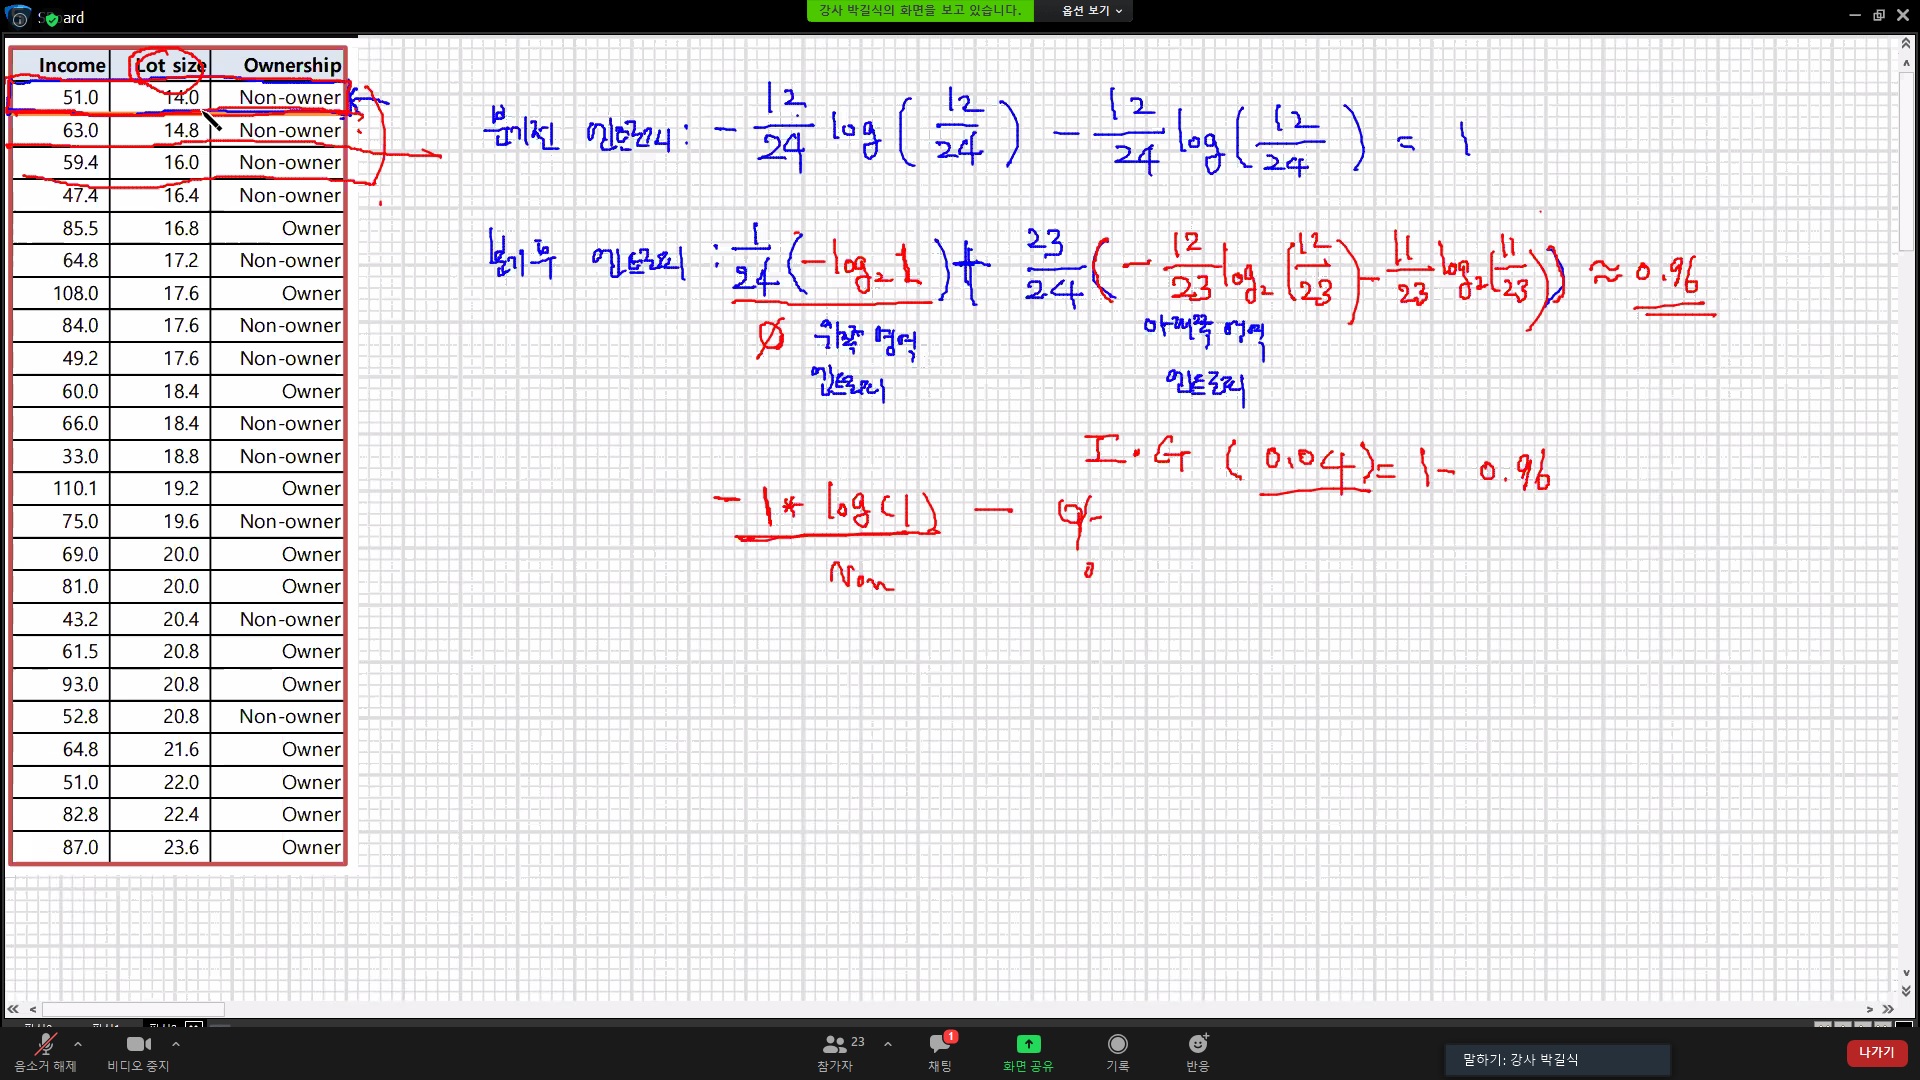 강사 박길식의 화면을 보고 있습니다.
옵션 보기
Income Lot size Ownership
51.0 14.0 Non-owner
63.0 14.8 Non-owner
59.4 16.0 Non-owner
47.4 16.4 Non-owner
85.5 16.8 Owner
64.8 17.2 Non-owner
108.0 17.6 Owner
84.0 17.6 Non-owner
49.2 17.6 Non-owner
60.0 18.4 Owner
66.0 18.4 Non-owner
33.0 18.8 Non-owner
110.1 19.2 Owner
75.0 19.6 Non-owner
69.0 20.0 Owner
81.0 20.0 Owner
43.2 20.4 Non-owner
61.5 20.8 Owner
93.0 20.8 Owner
52.8 20.8 Non-owner
64.8 21.6 Owner
51.0 22.0 Owner
82.8 22.4 Owner
87.0 23.6 Owner
분기전 엔트로피 : - 12/24 log ( 12/24 ) - 12/24 log ( 12/24 ) = 1
분기후 엔트로피 : 1/24 ( - log₂ 1 ) + 23/24 ( - 12/23 log₂ ( 12/23 ) - 11/23 log₂ ( 11/23 ) ) ≈ 0.96
위쪽 영역 엔트로피
아래쪽 영역 엔트로피
I.G ( 0.04 ) = 1 - 0.96
-1 * log(1) -
Non
0
음소거 해제
비디오 중지
참가자 23
채팅 1
화면 공유
기록
반응
말하기: 강사 박길식
나가기